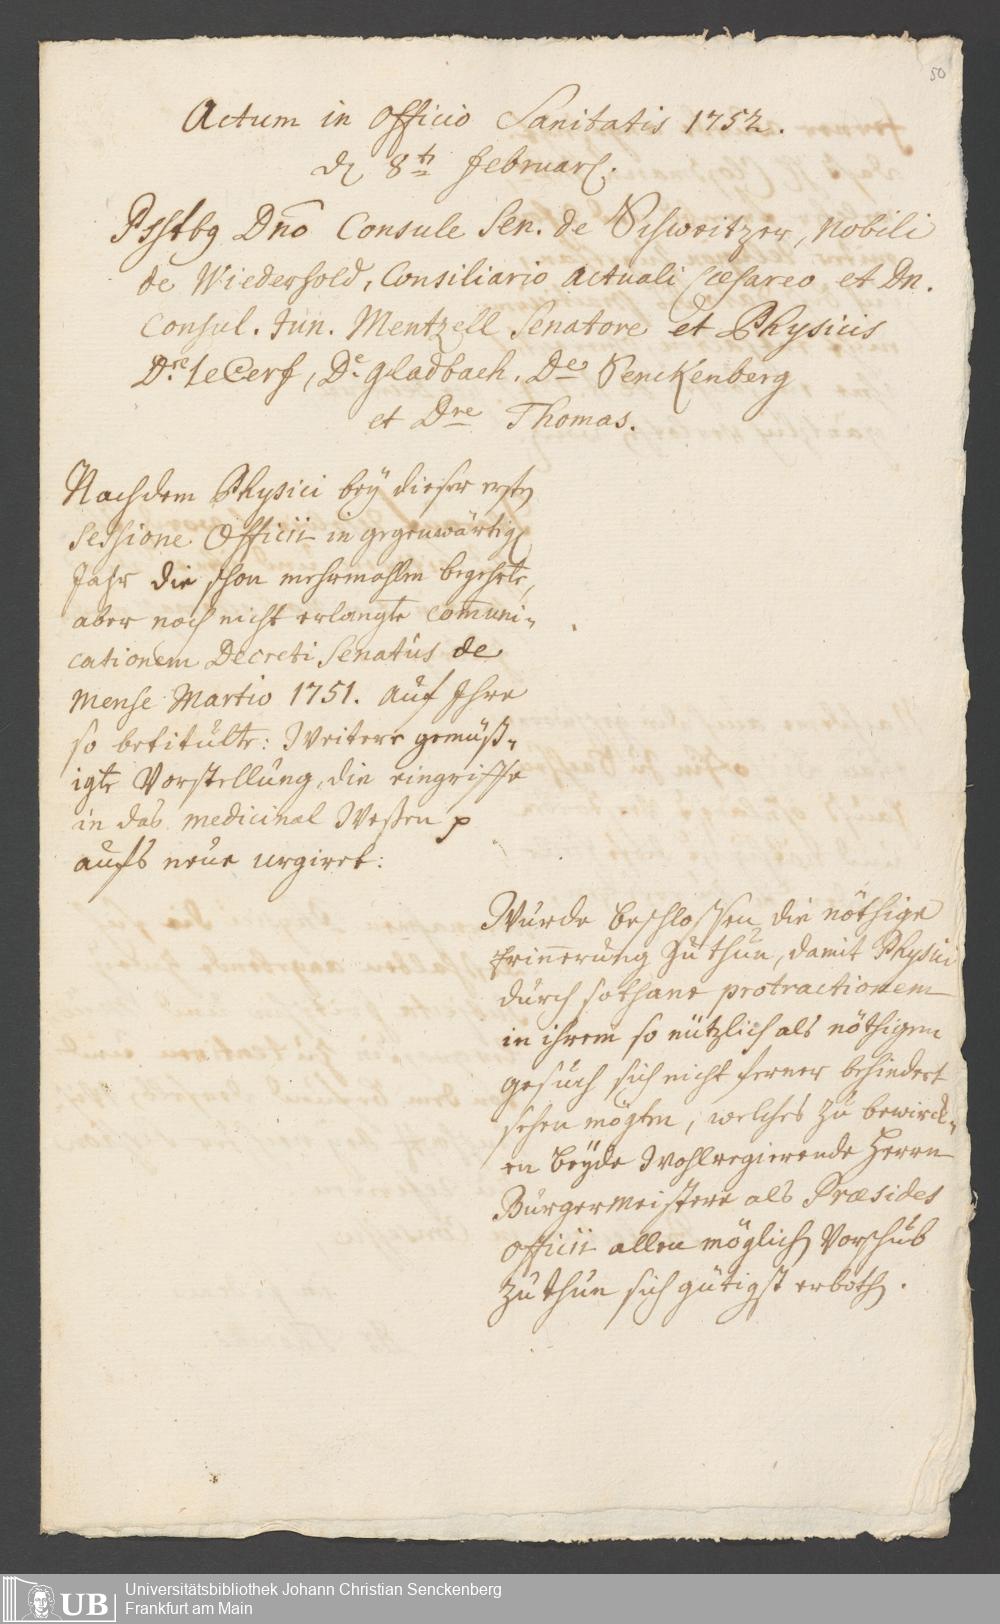 50
Actum in Officio Sanitatis 1752.
d. 8t. Februar.
Psstbg Dno Consule Sen. de Schweitzer, Nobili
de Wiederhold, Consiliario actuali Cæsareo et Dn.
Consul. Jun. Mentzell Senatore et Physicis
Dre. le Cerf, De. Gladbach. De Senckenberg
et Dre Thomas.
Nachdem Physici beÿ dieser ersten
Sessione Officii in gegenwärtigen
Jahr die schon mehrmahlen begehrte,
aber noch nicht erlangte communi-
cationem Decreti Senatus de
Mense Martio 1751. auf Ihre
so betitulte: Weitere gemüß-
igte Vorstellung, die eingriffe
in das medicinal Weßen p
aufs neue urgiret:
Wurde beschlossen die nöthige
Erinnerung zu thun, damit Physici
durch sothane protractionem
in ihrem so nützlich als nöthigen
gesuch sich nicht ferner behindert
sehen mögten, welches zu bewirck-
en beÿde Wohlregierende Herrn
Burgermeistere als Præsides
Officii allen möglichen Vorschub
zu thun sich gütigst erbothen.
UB
Universitätsbibliothek Johann Christian Senckenberg
Frankfurt am Main